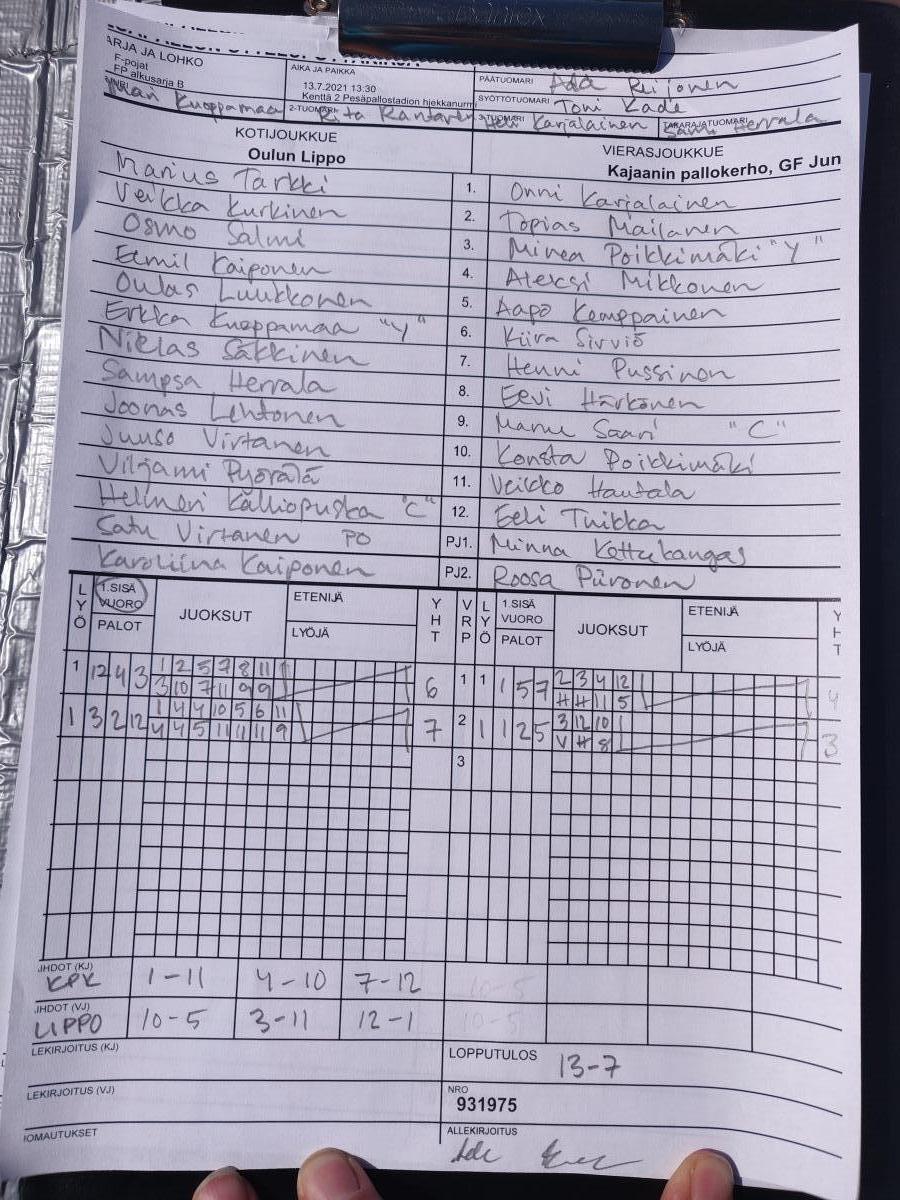 ARJA JA LOHKO
F-pojat
FP alkusarja B
AIKA JA PAIKKA
13.7.2021 13:30
Kenttä 2 Pesäpallostadion hiekkanurmi
PÄÄTUOMARI Ada Reijonen
SYÖTTÖTUOMARI Toni Kade
Kuoppamaa 2-TUOMARI Rita Rantanen 3-TUOMARI Heli Karjalainen TAKARAJATUOMARI Sami Herrala
KOTIJOUKKUE VIERASJOUKKUE
Oulun Lippo Kajaanin pallokerho, GF Jun
Marius Tarkki 1. Onni Karjalainen
Veikka Kurkinen 2. Topias Mailanen
Osmo Salmi 3. Minea Poikkimäki "Y"
Eemil Kaiponen 4. Aleksi Mikkonen
Oulas Luukkonen 5. Aapo Kemppainen
Erkka Kuoppamaa "Y" 6. Kiira Sirviö
Niklas Säkkinen 7. Henni Pussinen
Sampsa Herrala 8. Eevi Härkönen
Joonas Lehtonen 9. Saari "C"
Juuso Virtanen 10. Konsta Poikkimäki
Viljami Pyörälä 11. Veikko Hautala
Helmeri Kalliopuska "C" 12. Eeli Tuikka
Satu Virtanen PO PJ1. Minna Kettukangas
Karoliina Kaiponen PJ2. Roosa Piironen
LYÖ 1.SISÄ VUORO PALOT JUOKSUT ETENIJÄ LYÖJÄ YHT VRP LYÖ 1.SISÄ VUORO PALOT JUOKSUT ETENIJÄ LYÖJÄ YHT
1 12 4 3 1 2 5 7 8 11 6 1 1 1 5 7 2 3 4 12 4
3 10 7 11 9 9 H H 11 5
1 3 2 12 1 4 4 10 5 6 11 7 2 1 1 2 5 3 12 10 3
4 4 5 11 4 11 9 V H 8
3
JHDOT (KJ)
KPK 1-11 4-10 7-12 10-5
JHDOT (VJ)
LIPPO 10-5 3-11 12-1 10-5
LEKIRJOITUS (KJ) LOPPUTULOS 13-7
LEKIRJOITUS (VJ) NRO
931975
IOMAUTUKSET ALLEKIRJOITUS